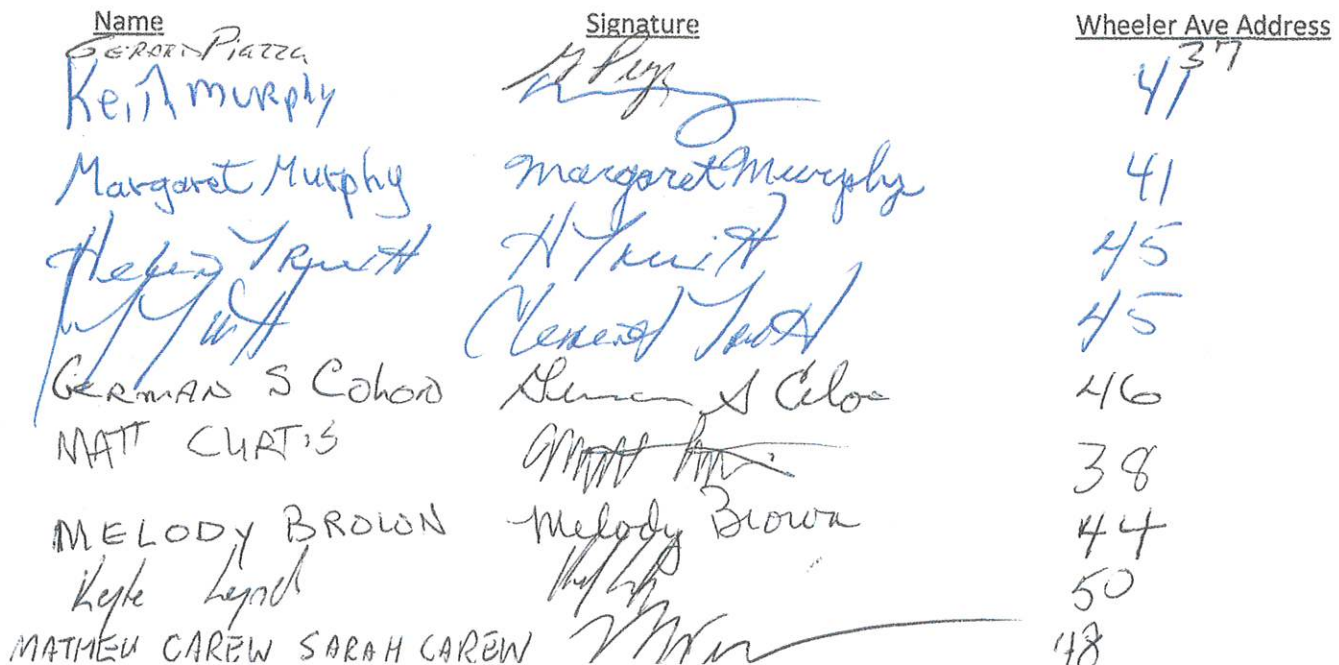 Name Signature Wheeler Ave Address
GERARD Piazza 37
Keith Murphy 41
Margaret Murphy Margaret Murphy 41
Helen Truitt H Truitt 45
Clement Truitt 45
GERMAN S Colon German S Colon 46
MATT CURTIS 38
MELODY BROWN Melody Brown 44
Kyle Lynch 50
MATHEW CAREW SARAH CAREW 48